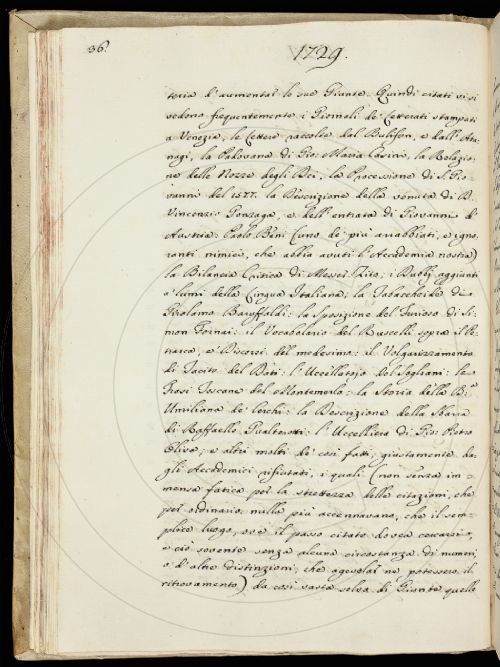 36.
1729.
teria d'aumentar le sue Giunte. Quindi citati vi si
vedono frequentemente i Giornali de' Letterati stampati
a Venezia; le Lettere raccolte dal Bulifon, e dall'Ata-
nagi, la Padovana di Gio: Maria Lavino, la Relazio-
ne delle Nozze degli Dei, la Processione di S. Gio-
vanni del 1577. la Descrizione della venuta di D.
Vincenzio Gonzaga, e dell'entrata di Giovanni d'
Austria: Paolo Beni (uno de' più arrabbiati, e igno-
ranti nimici, che abbia avuti l'Accademia nostra)
la Bilancia Critica di Messer Tito; i Dubbj aggiunti
a' lumi della Lingua Italiana; la Tabaccheide di
Girolamo Baruffaldi: la Sposizione del Furioso di Si-
mon Fornari: il Vocabolario del Ruscelli sopra il Pe-
trarca, e' Discorsi del medesimo: il Volgarizzamento
di Tacito del Dati: l'Uccellatojo del Soglani: le
Prose Toscane del Montemerlo: la Storia della B.a
Umiliana de' Cerchi: la Descrizione della Maria
di Raffaello Gualterotti: l'Uccelliera di Gio: Pietro
Oliva; e altri molti de' così fatti, giustamente da-
gli Accademici rifiutati, i quali (non senza im-
mensa fatica per la strettezza delle citazioni, che
per ordinario nulla più accennavano, che il sem-
plice luogo, ove il passo citato dovea cercarsi,
e ciò sovente senza alcuna circostanza di numeri
o d'altre distinzioni, che agevolar ne potessero il
ritrovamento) da così vasta selva di Giunte quelle